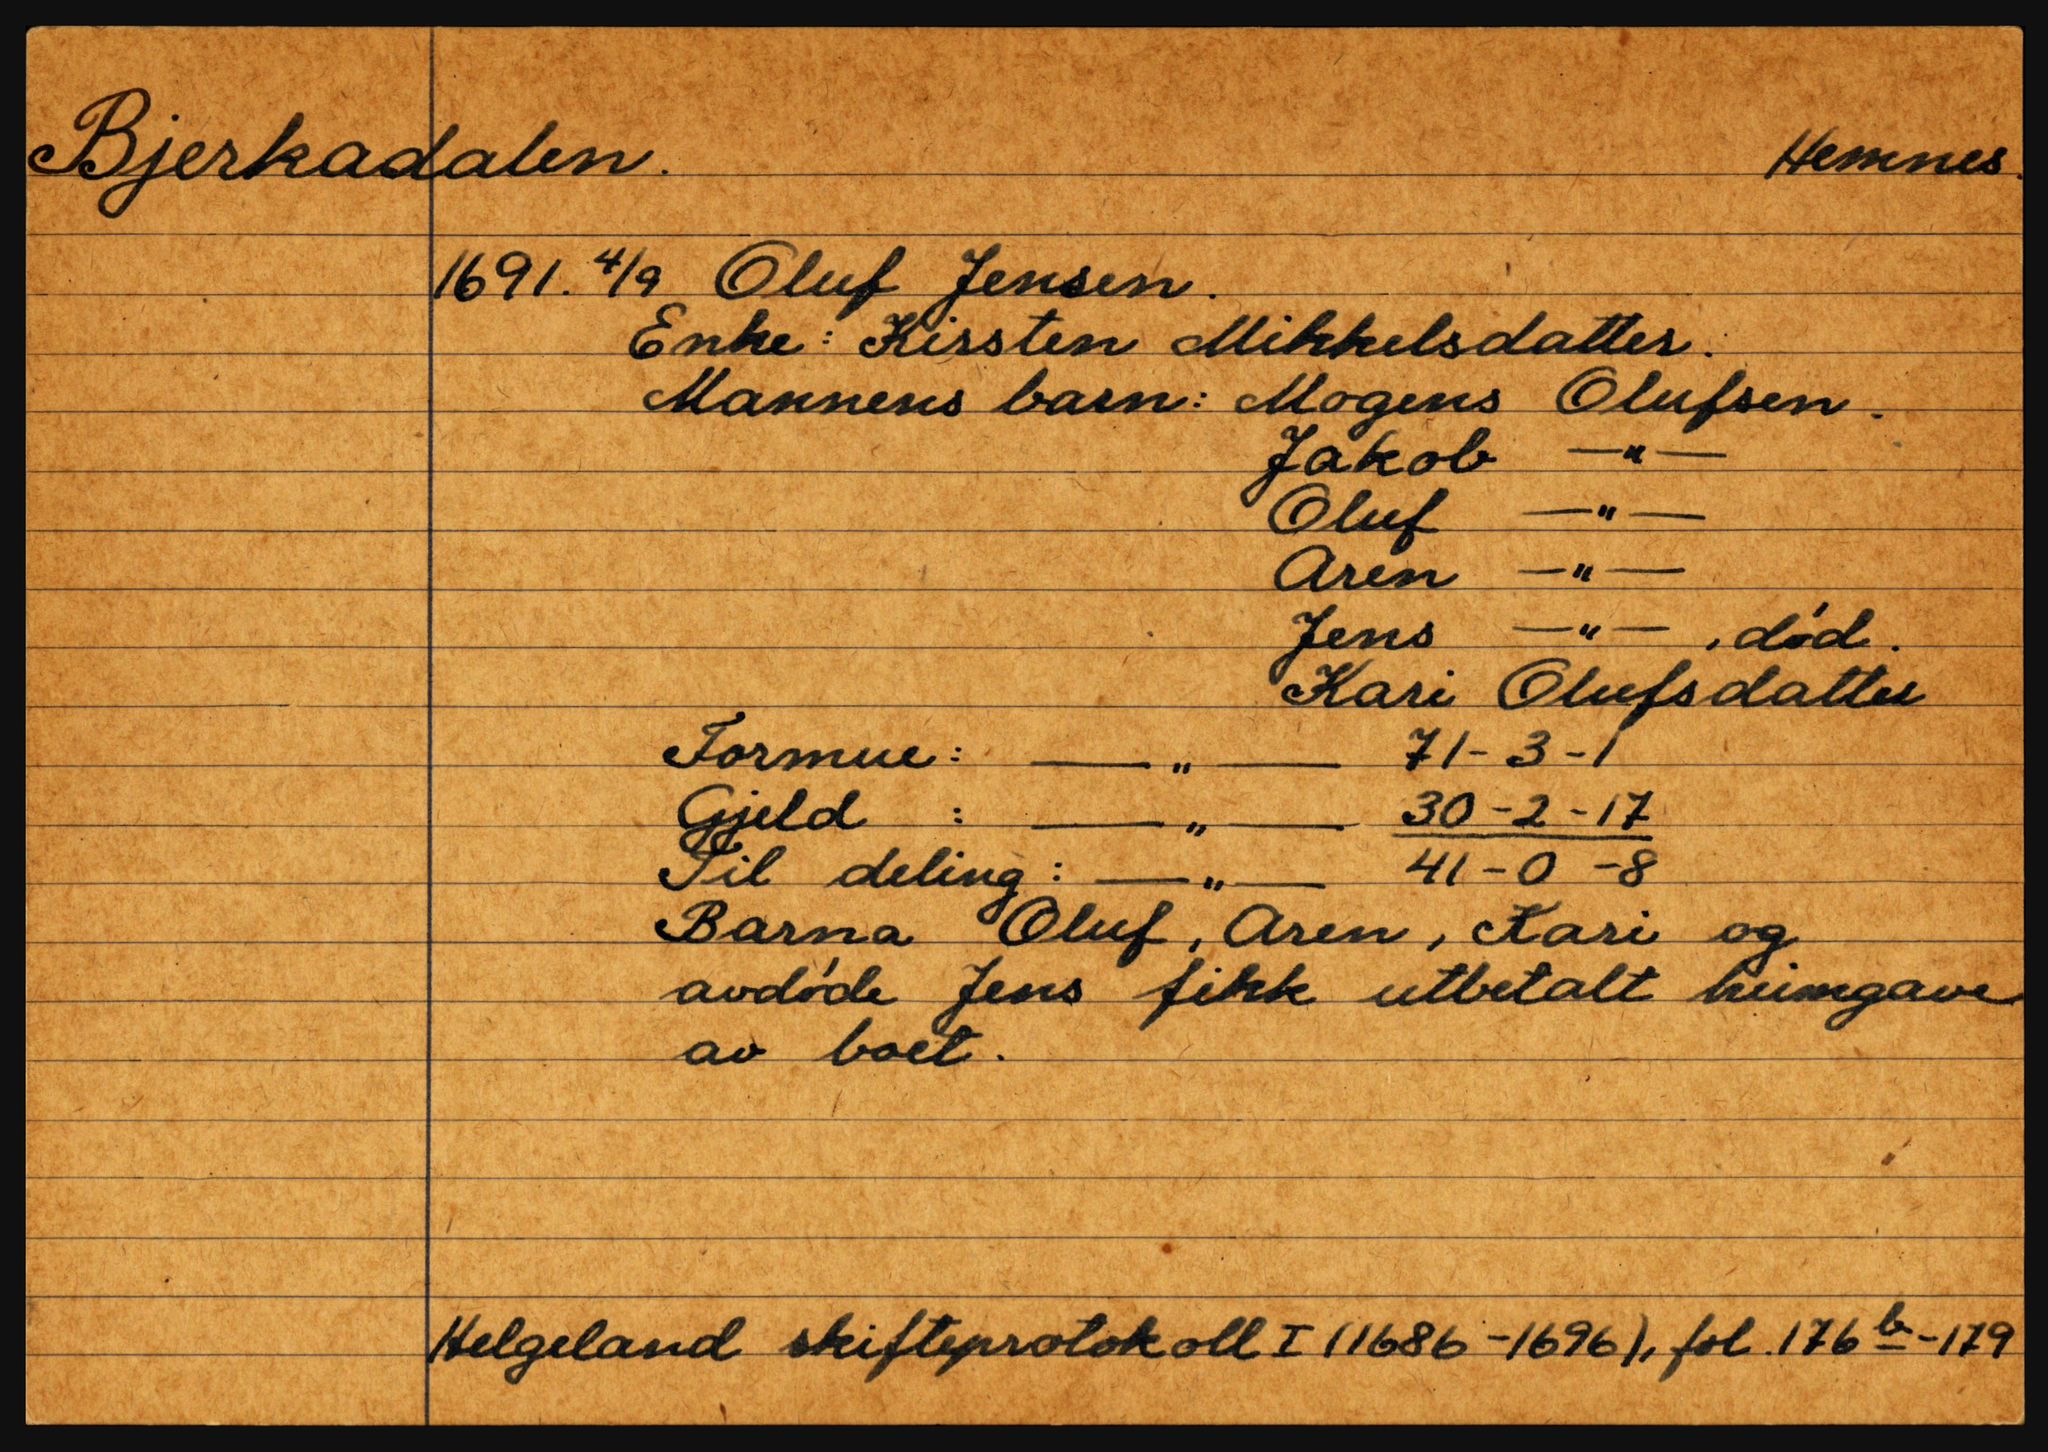 Bjerkadalen. Hemnes.
1691. 4/9 Oluf Jensen.
Enke: Kirsten Mikkelsdatter.
Mannens barn: Mogens Olufsen.
Jakob —"—
Oluf —"—
Aren —"—
Jens —"—, død.
Kari Olufsdatter
Formue: —"— 71-3-1
Gjeld : —"— 30-2-17
Til deling: —"— 41-0-8
Barna Oluf, Aren, Kari og
avdøde Jens fikk utbetalt heimgave
av boet.
Helgeland skifteprotokoll I (1686-1696), fol. 176b-179